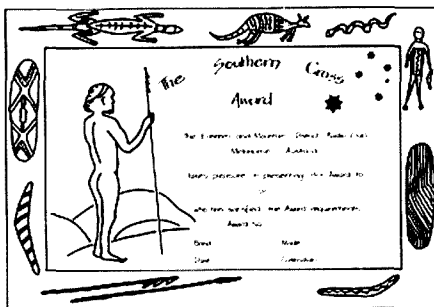 The Southern Cross
Award
The Eastern and Mountain District Radio Club
Melbourne Australia
takes pleasure in presenting this Award to
of
who has satisfied the Award requirements.
Award No.
Band Mode
Date